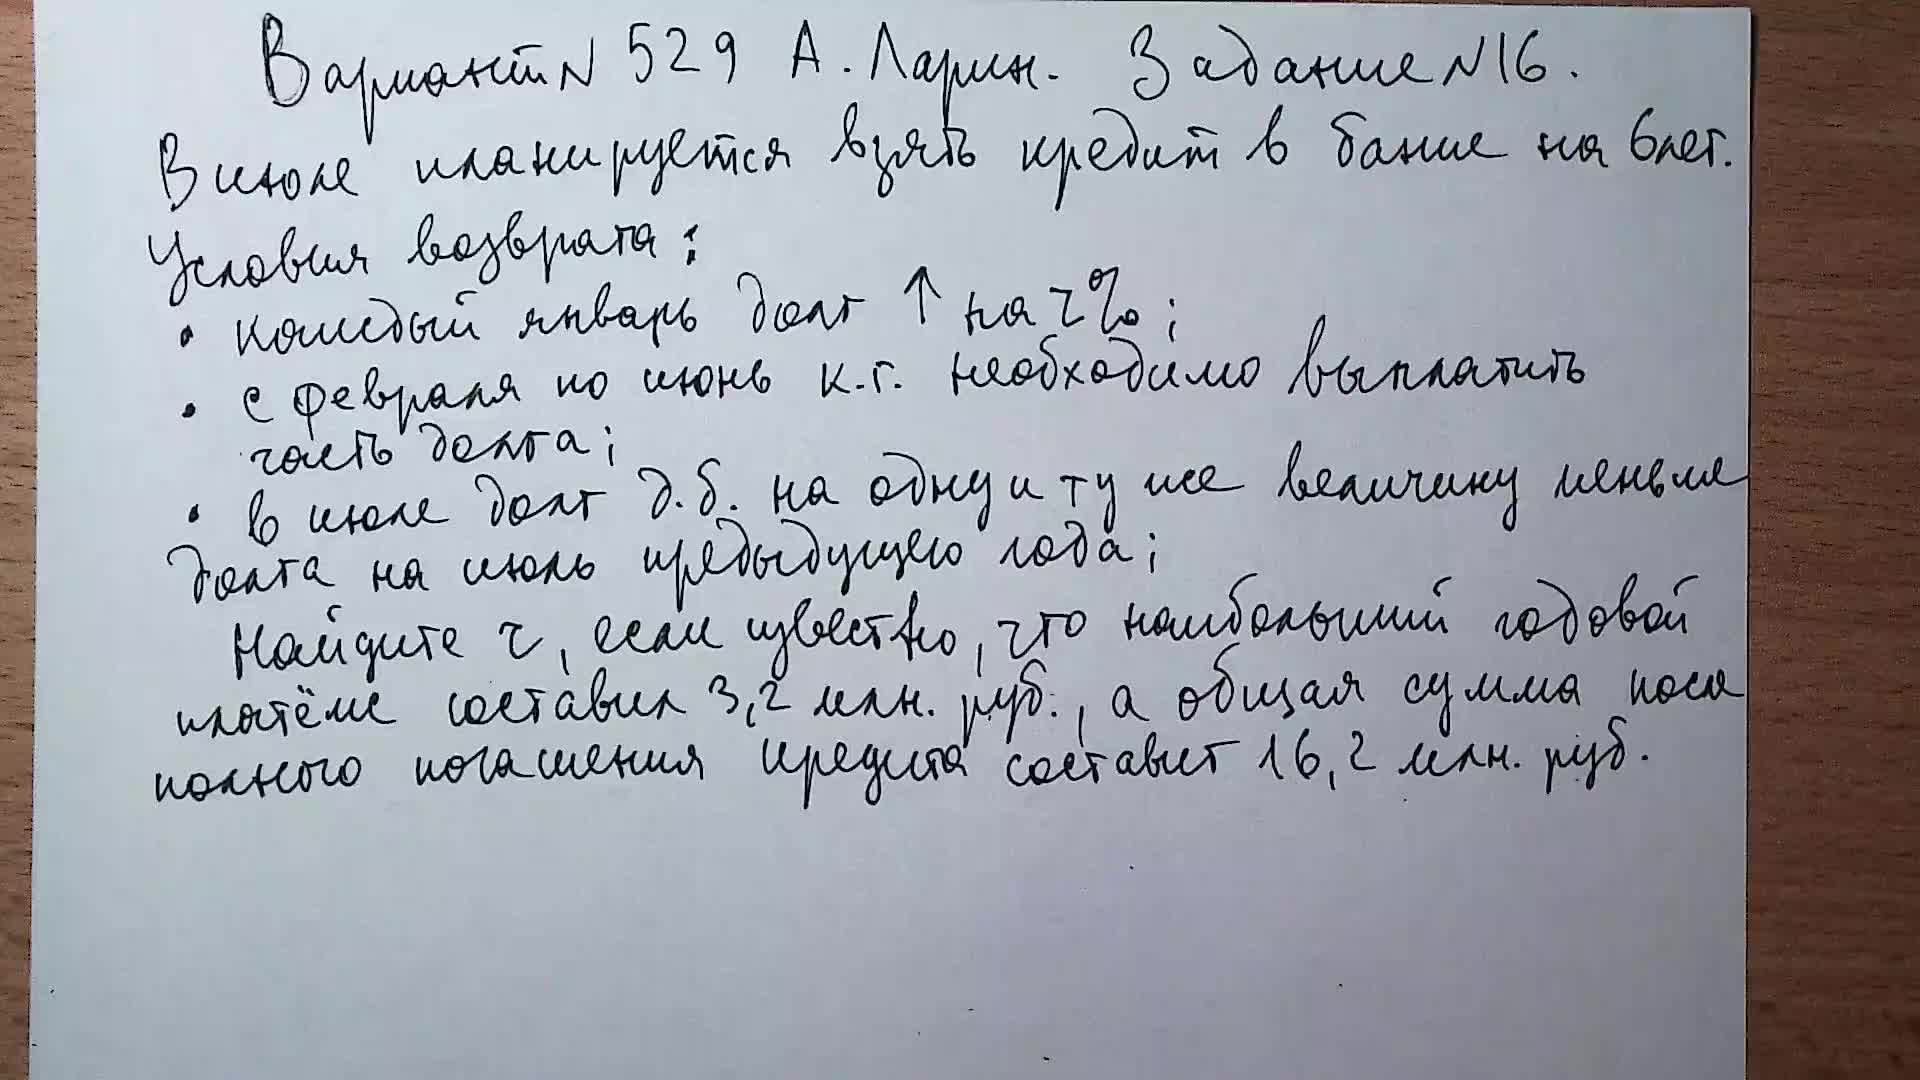 Вариант N 529 А. Ларин. Задание N16.
В июле планируется взять кредит в банке на 6 лет.
Условия возврата:
• каждый январь долг ↑ на r%;
• с февраля по июнь к.г. необходимо выплатить
часть долга;
• в июле долг д.б. на одну и ту же величину меньше
долга на июль предыдущего года;
Найдите r, если известно, что наибольший годовой
платёж составил 3,2 млн. руб., а общая сумма посл
полного погашения кредита составит 16,2 млн. руб.